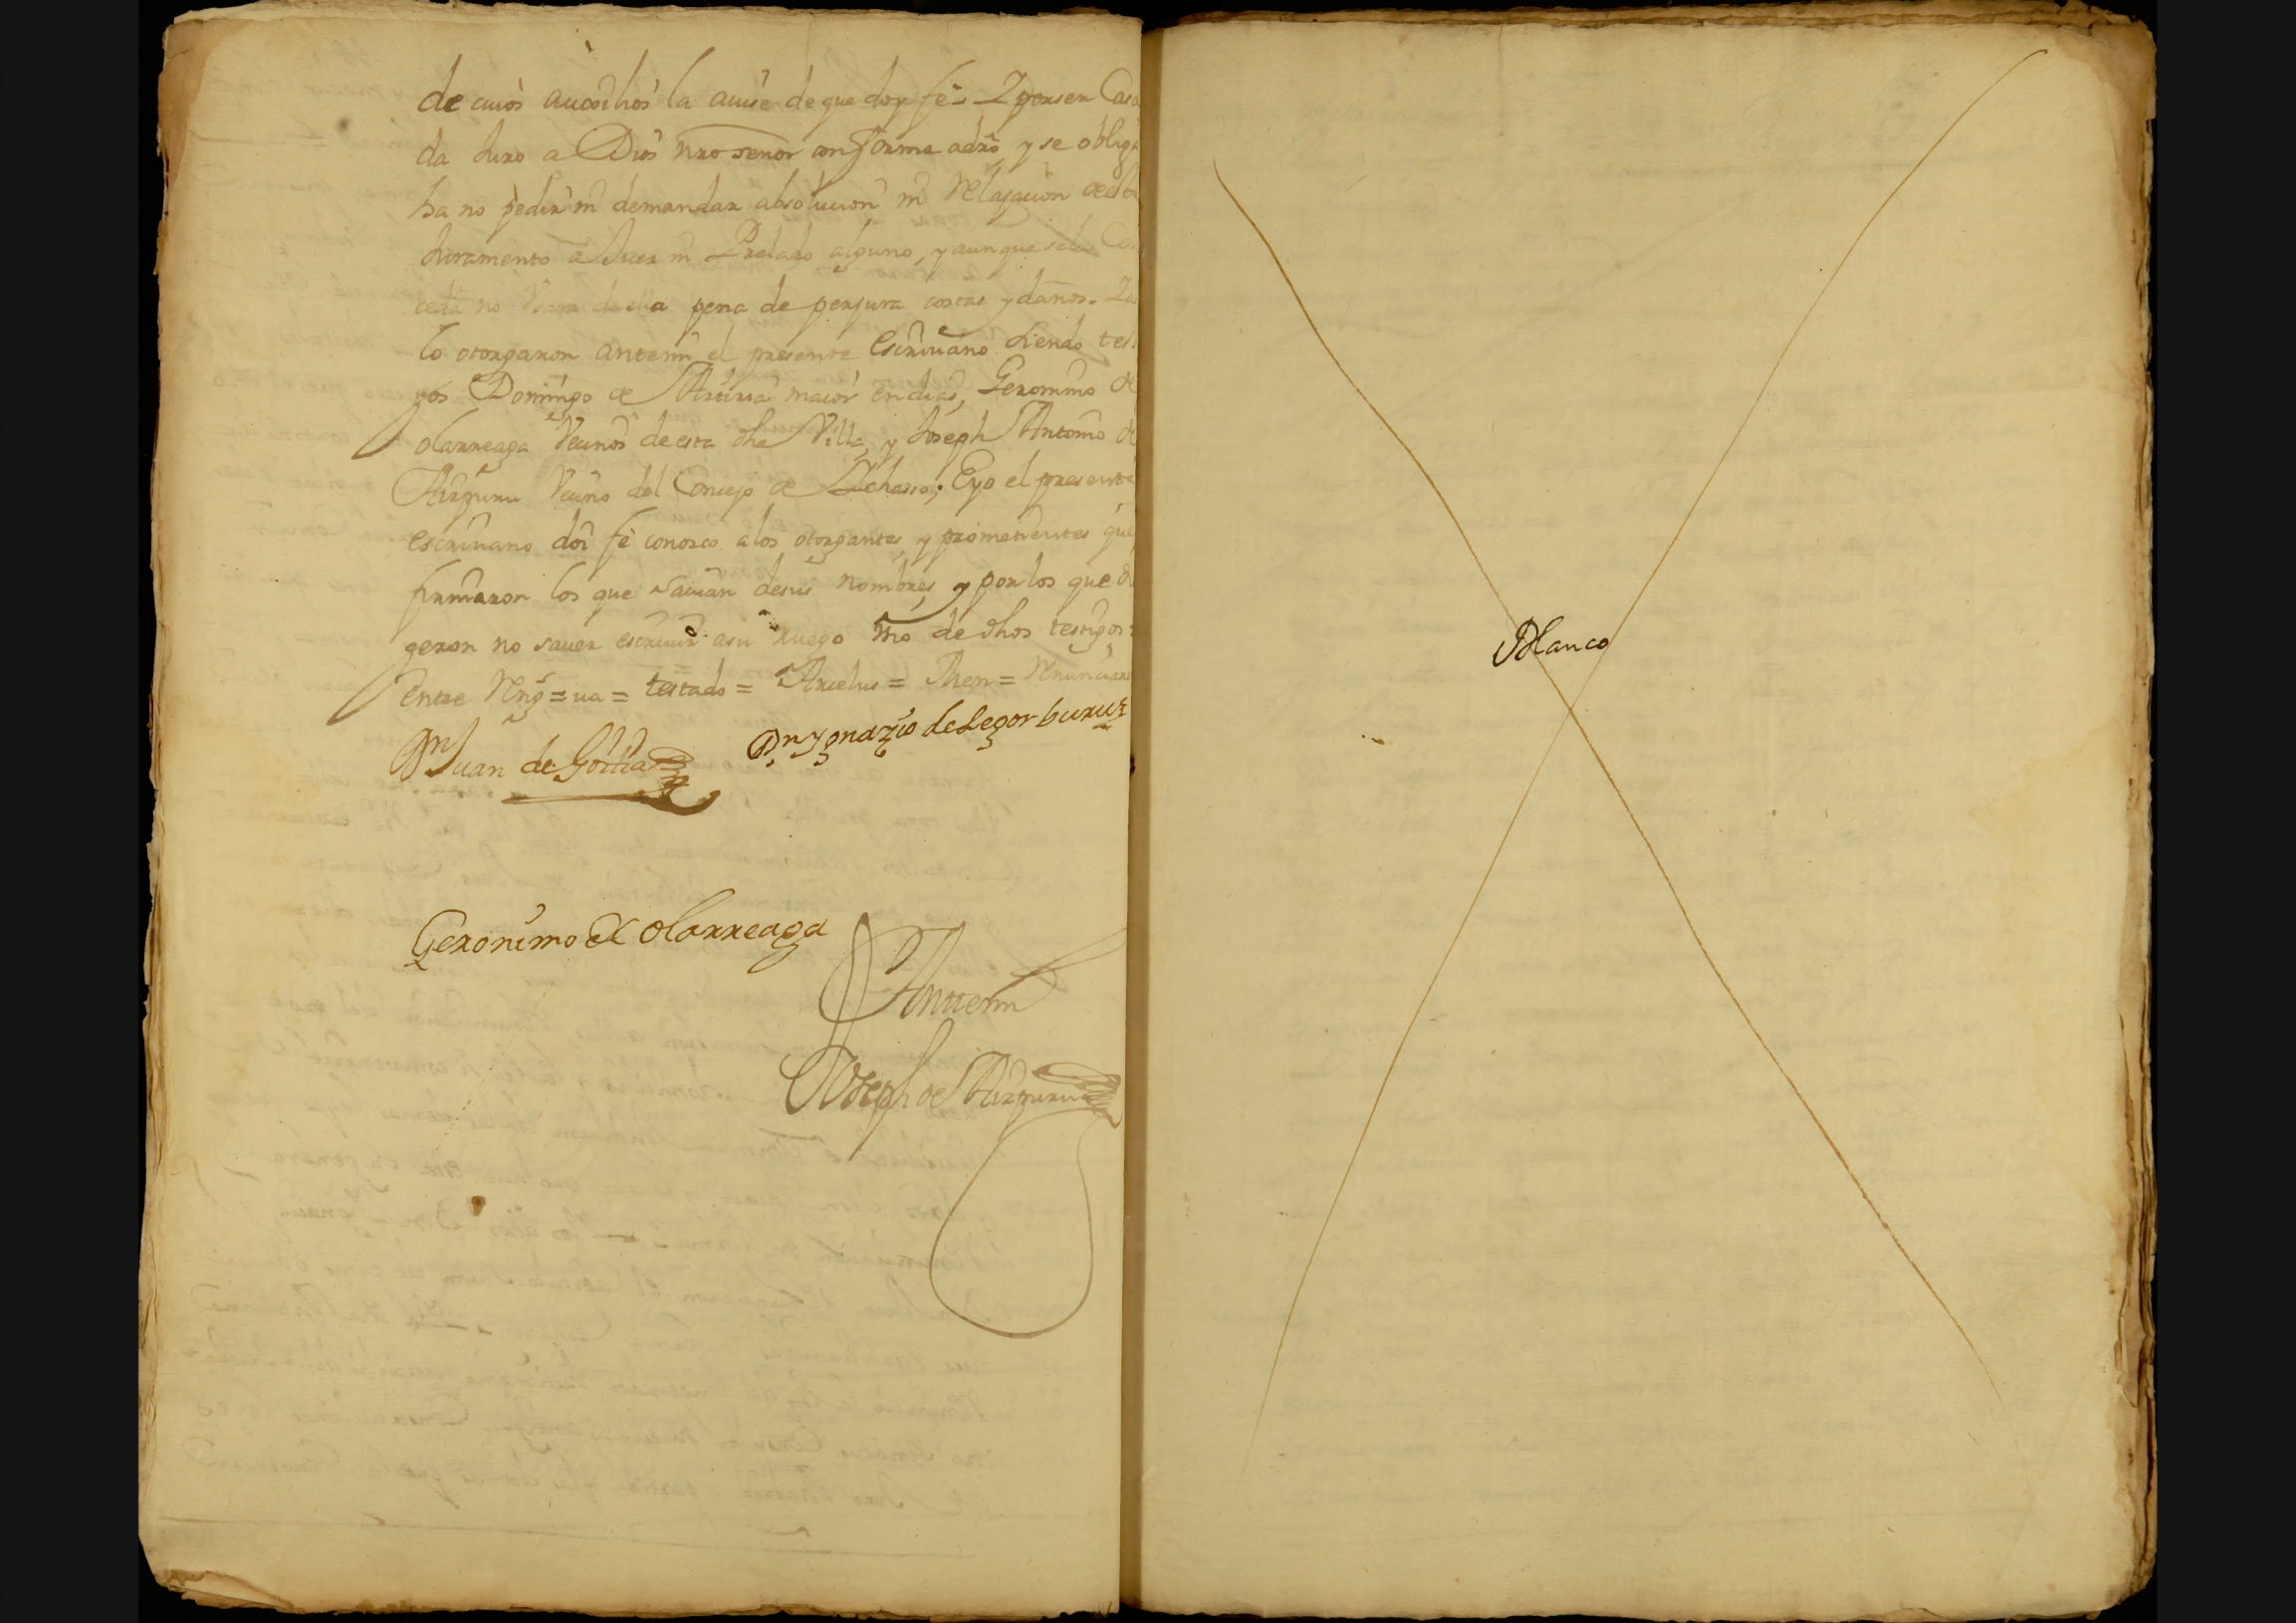 de cuios auxilios la auise de que doy fee Y por ser Casa
da Juro a Dios nro senor conforme a dro, y se obligo
ha no pedir ni demandar absolucion ni Relajacion de este
Juramento a Juez ni Prelado alguno, y aunque se la Con
ceda no Usara de ella pena de perjura costas y daños. Y asi
lo otorgaron antemi el presente escriuano siendo testi
gos Domingo de maior en dias, Geronimo de
olarreaga Vecinos de esta dha Villa, y Joseph Antonio de
Aizpuru Vecino del Concejo de Eyo el presente
escriuano doi fe conozco a los otorgantes, y prometientes que
firmaron los que sauian de sus nombres, y por los que di
geron no sauer escriuir a su ruego vno de dhos testigos=
Entre Rengs = ua = testado = = = Renunciar
Dn Juan de Goitia Dn Ygnazio de Legorburu
Geronimo de olarreaga
Antemi
Joseph de Aizpuru
Blanco